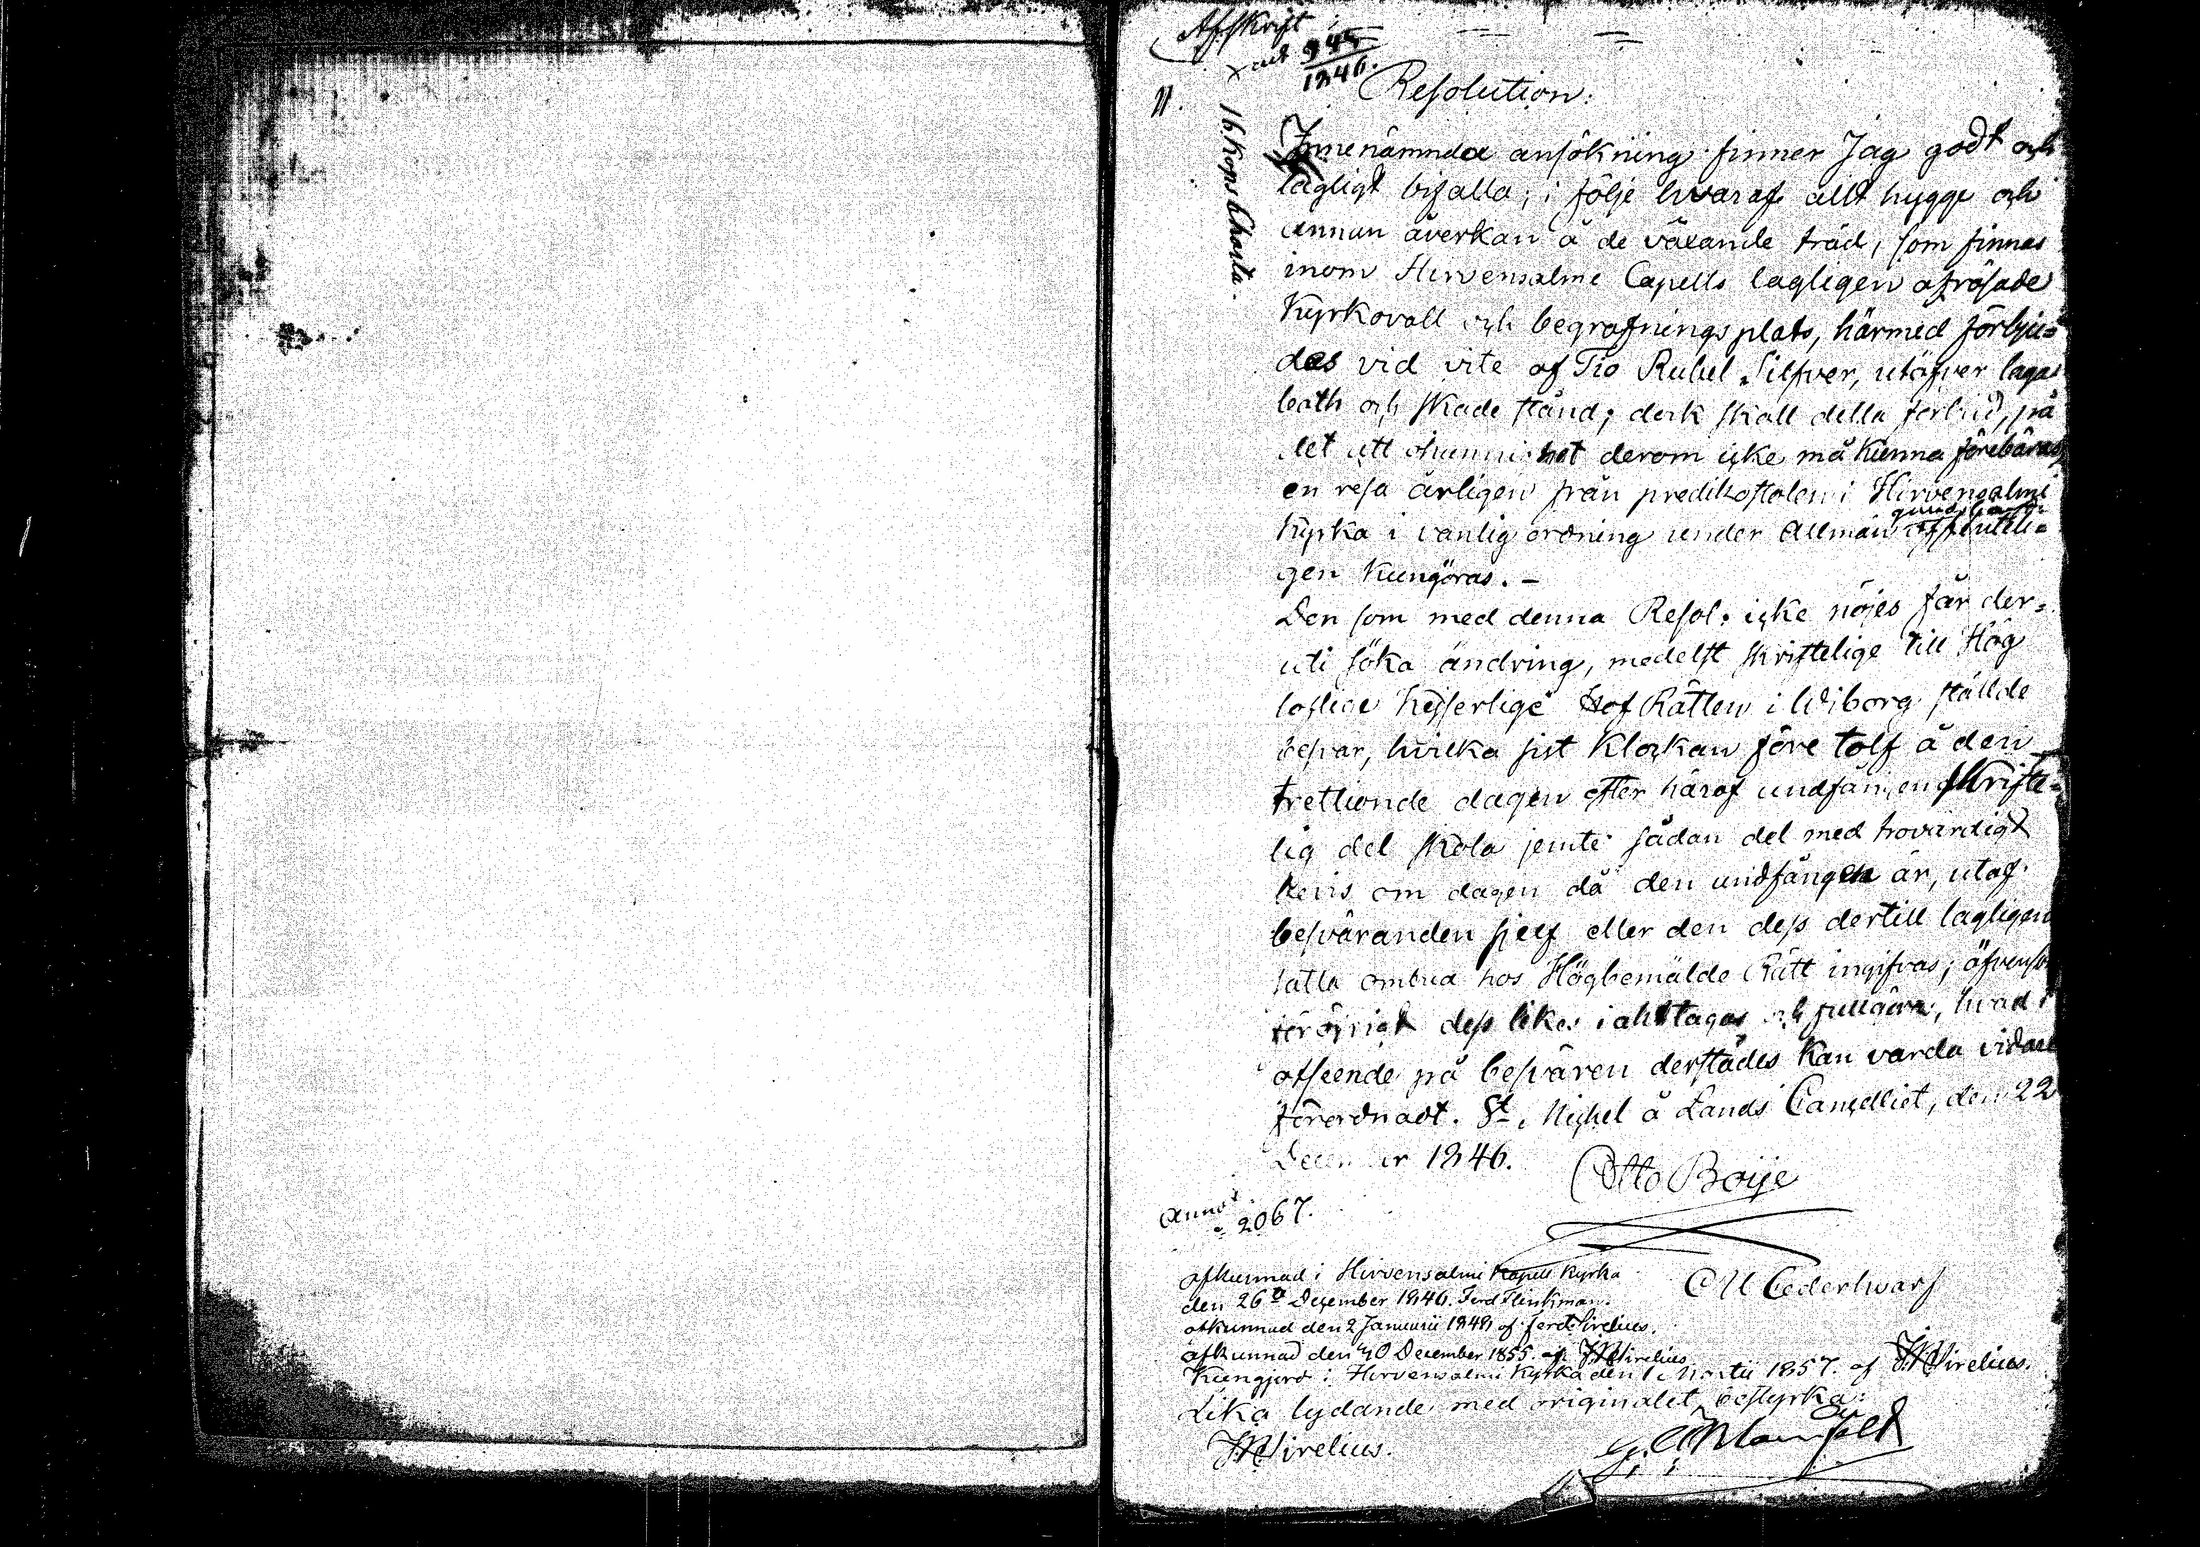 Afskrift
ad 945/1846.
11.
16 Kops Charta.
Resolution:
Innenämnda ansökning finner Jag godt och
lagligt bifalla; i följe hvaraf allt hygge och
annan åverkan å de växande träd, som finnas
inom Hirvensalmi Capells lagligen afrösade
Kyrkovall och begrafningsplats, härmed förbju=
des vid vite af Tio Rubel Silfver, utöfver laga
both och skadestånd; dock skall detta förbud, på
det att okunnighet derom icke må kunna förebäras,
en resa årligen från predikostolen i Hirvensalmi
Kyrka i vanlig ordning under allmän gudstjenst offenteli=
gen kungöras. –
Den som med denna Resol. icke nöjes får der=
uti söka ändring, medelst skriftelige till Hög
loflige Kejserlige Hof Rätten i Wiborg ställde
besvär, hvilka sist Klockan före tolf å den
trettionde dagen efter häraf undfången skrifte=
lig del skola jemte sådan del med trovärdigt
bevis om dagen då den undfången är, utaf
besväranden sjelf eller den dess dertill lagligen
satta ombud hos Högbemälde Rätt ingifvas; äfvensom
föröfrigt dess likes iakttagas och fullgöra, hvad i
afseende på besvären derstädes kan varda vidare
förordnadt. St. Michel å Lands Cancelliet, den 22
December 1846.
Otto Boije
Anno
2067.
C U Cederhwarf
afkunnad i Hirvensalmi Kapell Kyrka
den 26te December 1846. Ferd Flinkman.
afkunnad den 2 Januarii 1848 af ferd. Sirelius.
afkunnad den 30 December 1855 af Sirelius
Kungjord i Hirvensalmi Kyrka den 1 Martii 1857. af Sirelius.
Lika lydande med originalet, bestyrka:
Sirelius.